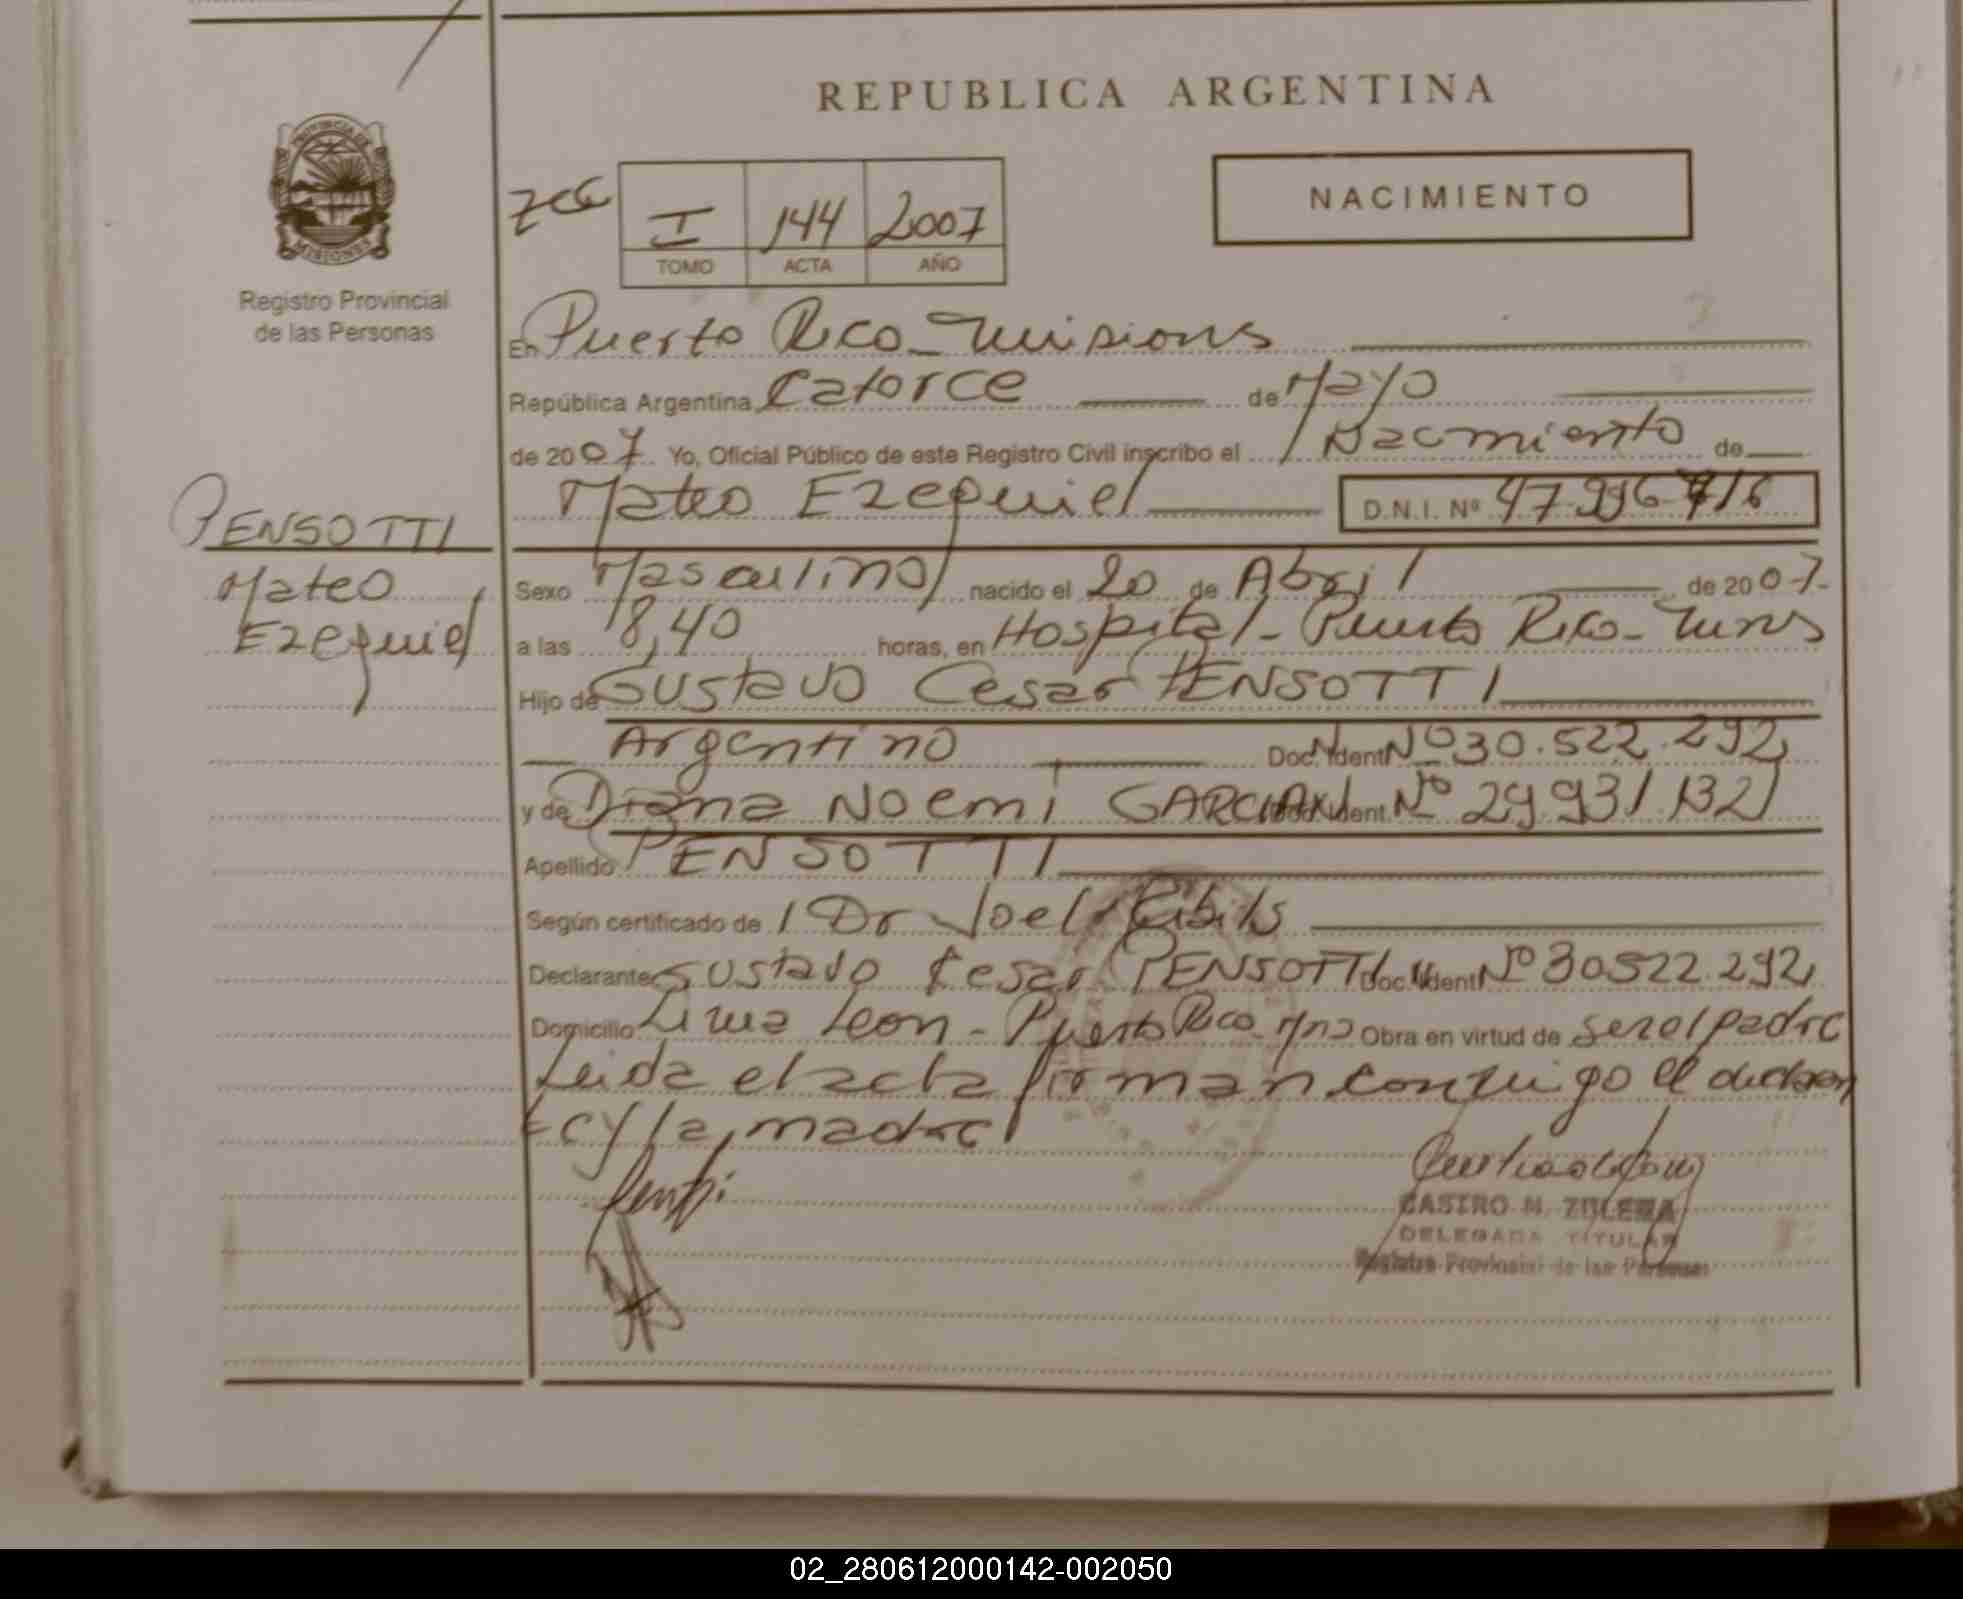 REPUBLICA ARGENTINA
PROVINCIA DE
MISIONES
Registro Provincial
de las Personas
I 144 2007
TOMO ACTA AÑO
NACIMIENTO
En Puerto Rico - Misiones
República Argentina, Catorce de Mayo
de 2007. Yo, Oficial Público de este Registro Civil inscribo el Nacimiento de
Mateo Ezequiel D.N.I. Nº
PENSOTTI
Mateo
Ezequiel
Sexo Masculino nacido el 20 de Abril de 2007.
a las 8,40 horas, en Hospital - Puerto Rico -
Hijo de Gustavo Cesar PENSOTTI
Argentino Doc. Ident. Nº 30.522.292
y de Diana Noemi GARCIA Doc. Ident. Nº 29931.132
Apellido PENSOTTI
Según certificado de Dr Joel
Declarante Gustavo Cesar PENSOTTI Doc. Ident. Nº 30522.292
Domicilio Leon - Puerto Rico - Mns Obra en virtud de ser el padre
Leida el acta firman conmigo el declaran
te y la madre
CASTRO M. ZULEMA
DELEGADA TITULAR
Registro Provincial de las Personas
02_280612000142-002050